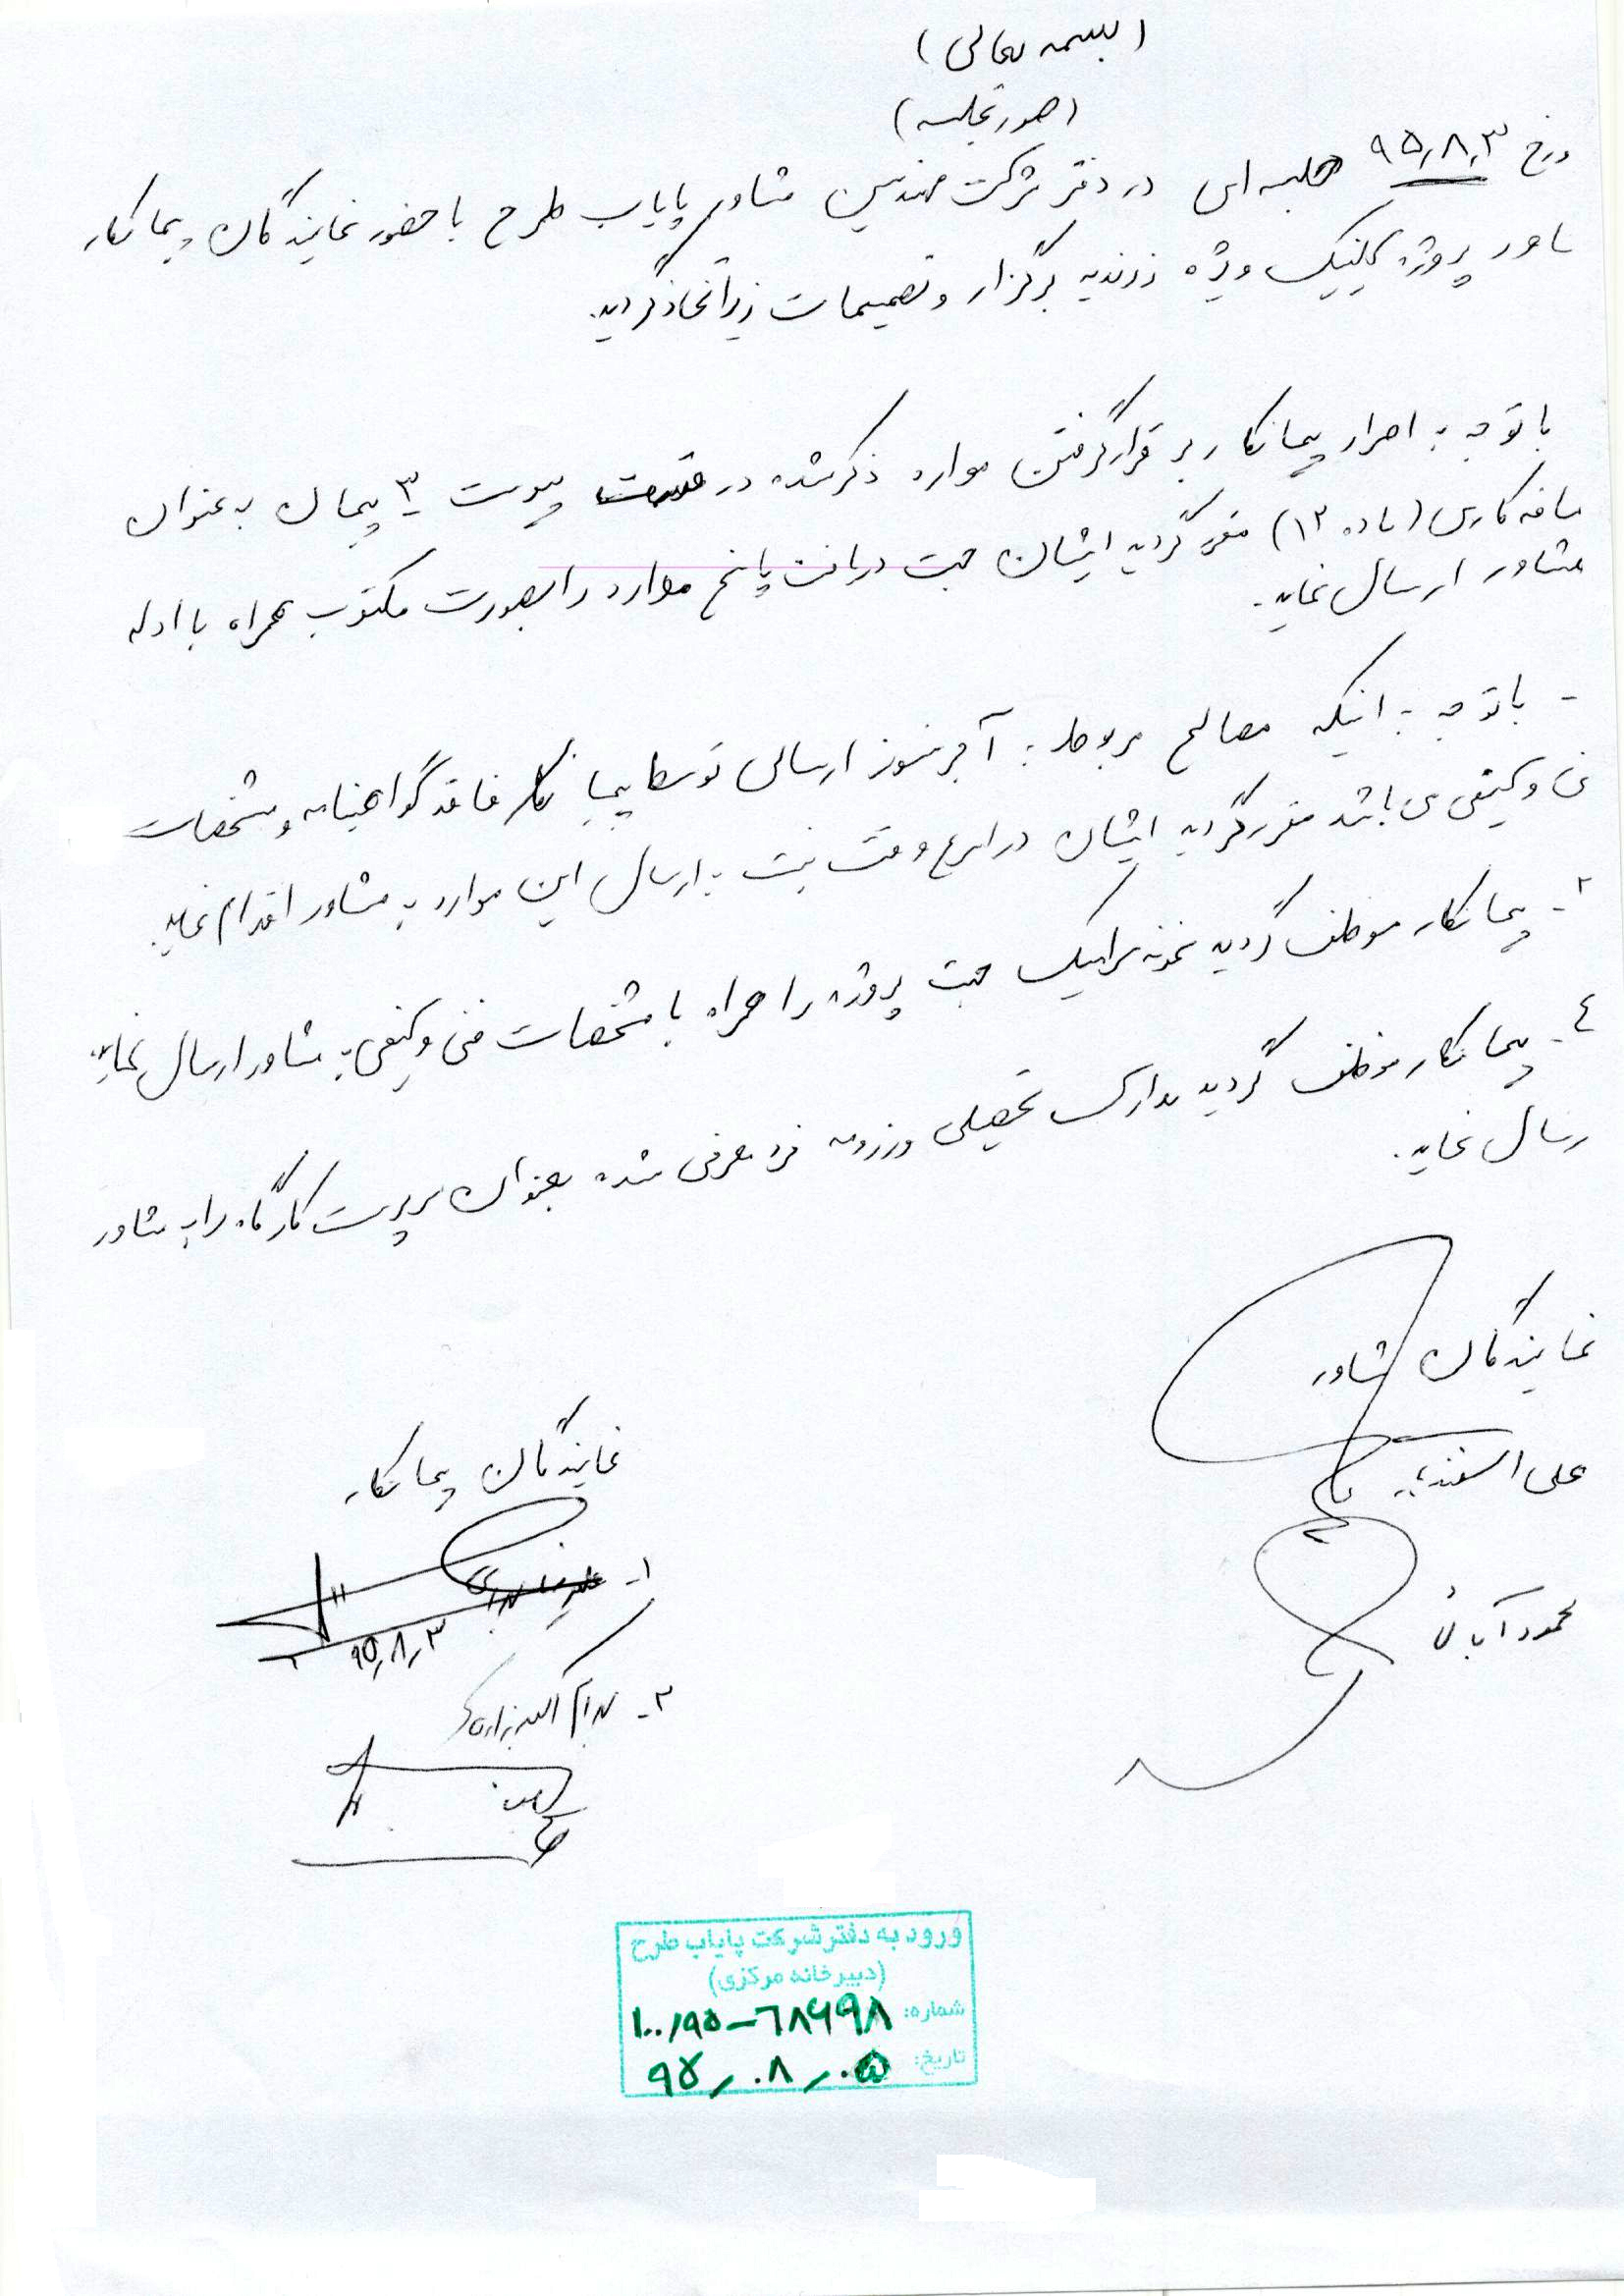 (بسمه تعالی)
(صورتجلسه)
ورخ ۹۵٫۸٫۳ جلسه ای در دفتر شرکت مهندسین مشاور پایاب طرح با حضور نمایندگان پیمانکار
شاور پروژه کلینیک ویژه زرندیه برگزار و تصمیمات زیر اتخاذ گردید.
با توجه به اصرار پیمانکار بر قرار گرفتن موارد ذکر شده در پیوست ۳ پیمان به عنوان
ضافه کاری (ماده ۱۲) مقرر گردید ایشان جهت دریافت پاسخ موارد را بصورت مکتوب همراه با ادله
مشاور ارسال نماید.
- با توجه به اینکه مصالح مربوط به آجر نسوز ارسالی توسط پیمانکار فاقد گواهینامه و مشخصات
نی و کیفی می باشد مقرر گردید ایشان در اسرع وقت نسبت به ارسال این موارد به مشاور اقدام نماید.
۳- پیمانکار موظف گردید نمونه سرامیک جهت پروژه را همراه با مشخصات فنی و کیفی به مشاور ارسال نماید.
٤- پیمانکار موظف گردید مدارک تحصیلی و رزومه فرد معرفی شده بعنوان سرپرست کارگاه را به مشاور
رسال نماید.
نمایندگان مشاور
علی اسفندیار
محمود آبائی
نمایندگان پیمانکار
۱- علیرضا
۹۵٫۸٫۳
۲-
ورود به دفتر شرکت پایاب طرح
(دبیرخانه مرکزی)
شماره: ۱۰۰٫۹۵-۶۸۶۹۸
تاریخ: ۹۵٫۰۸٫۰۵